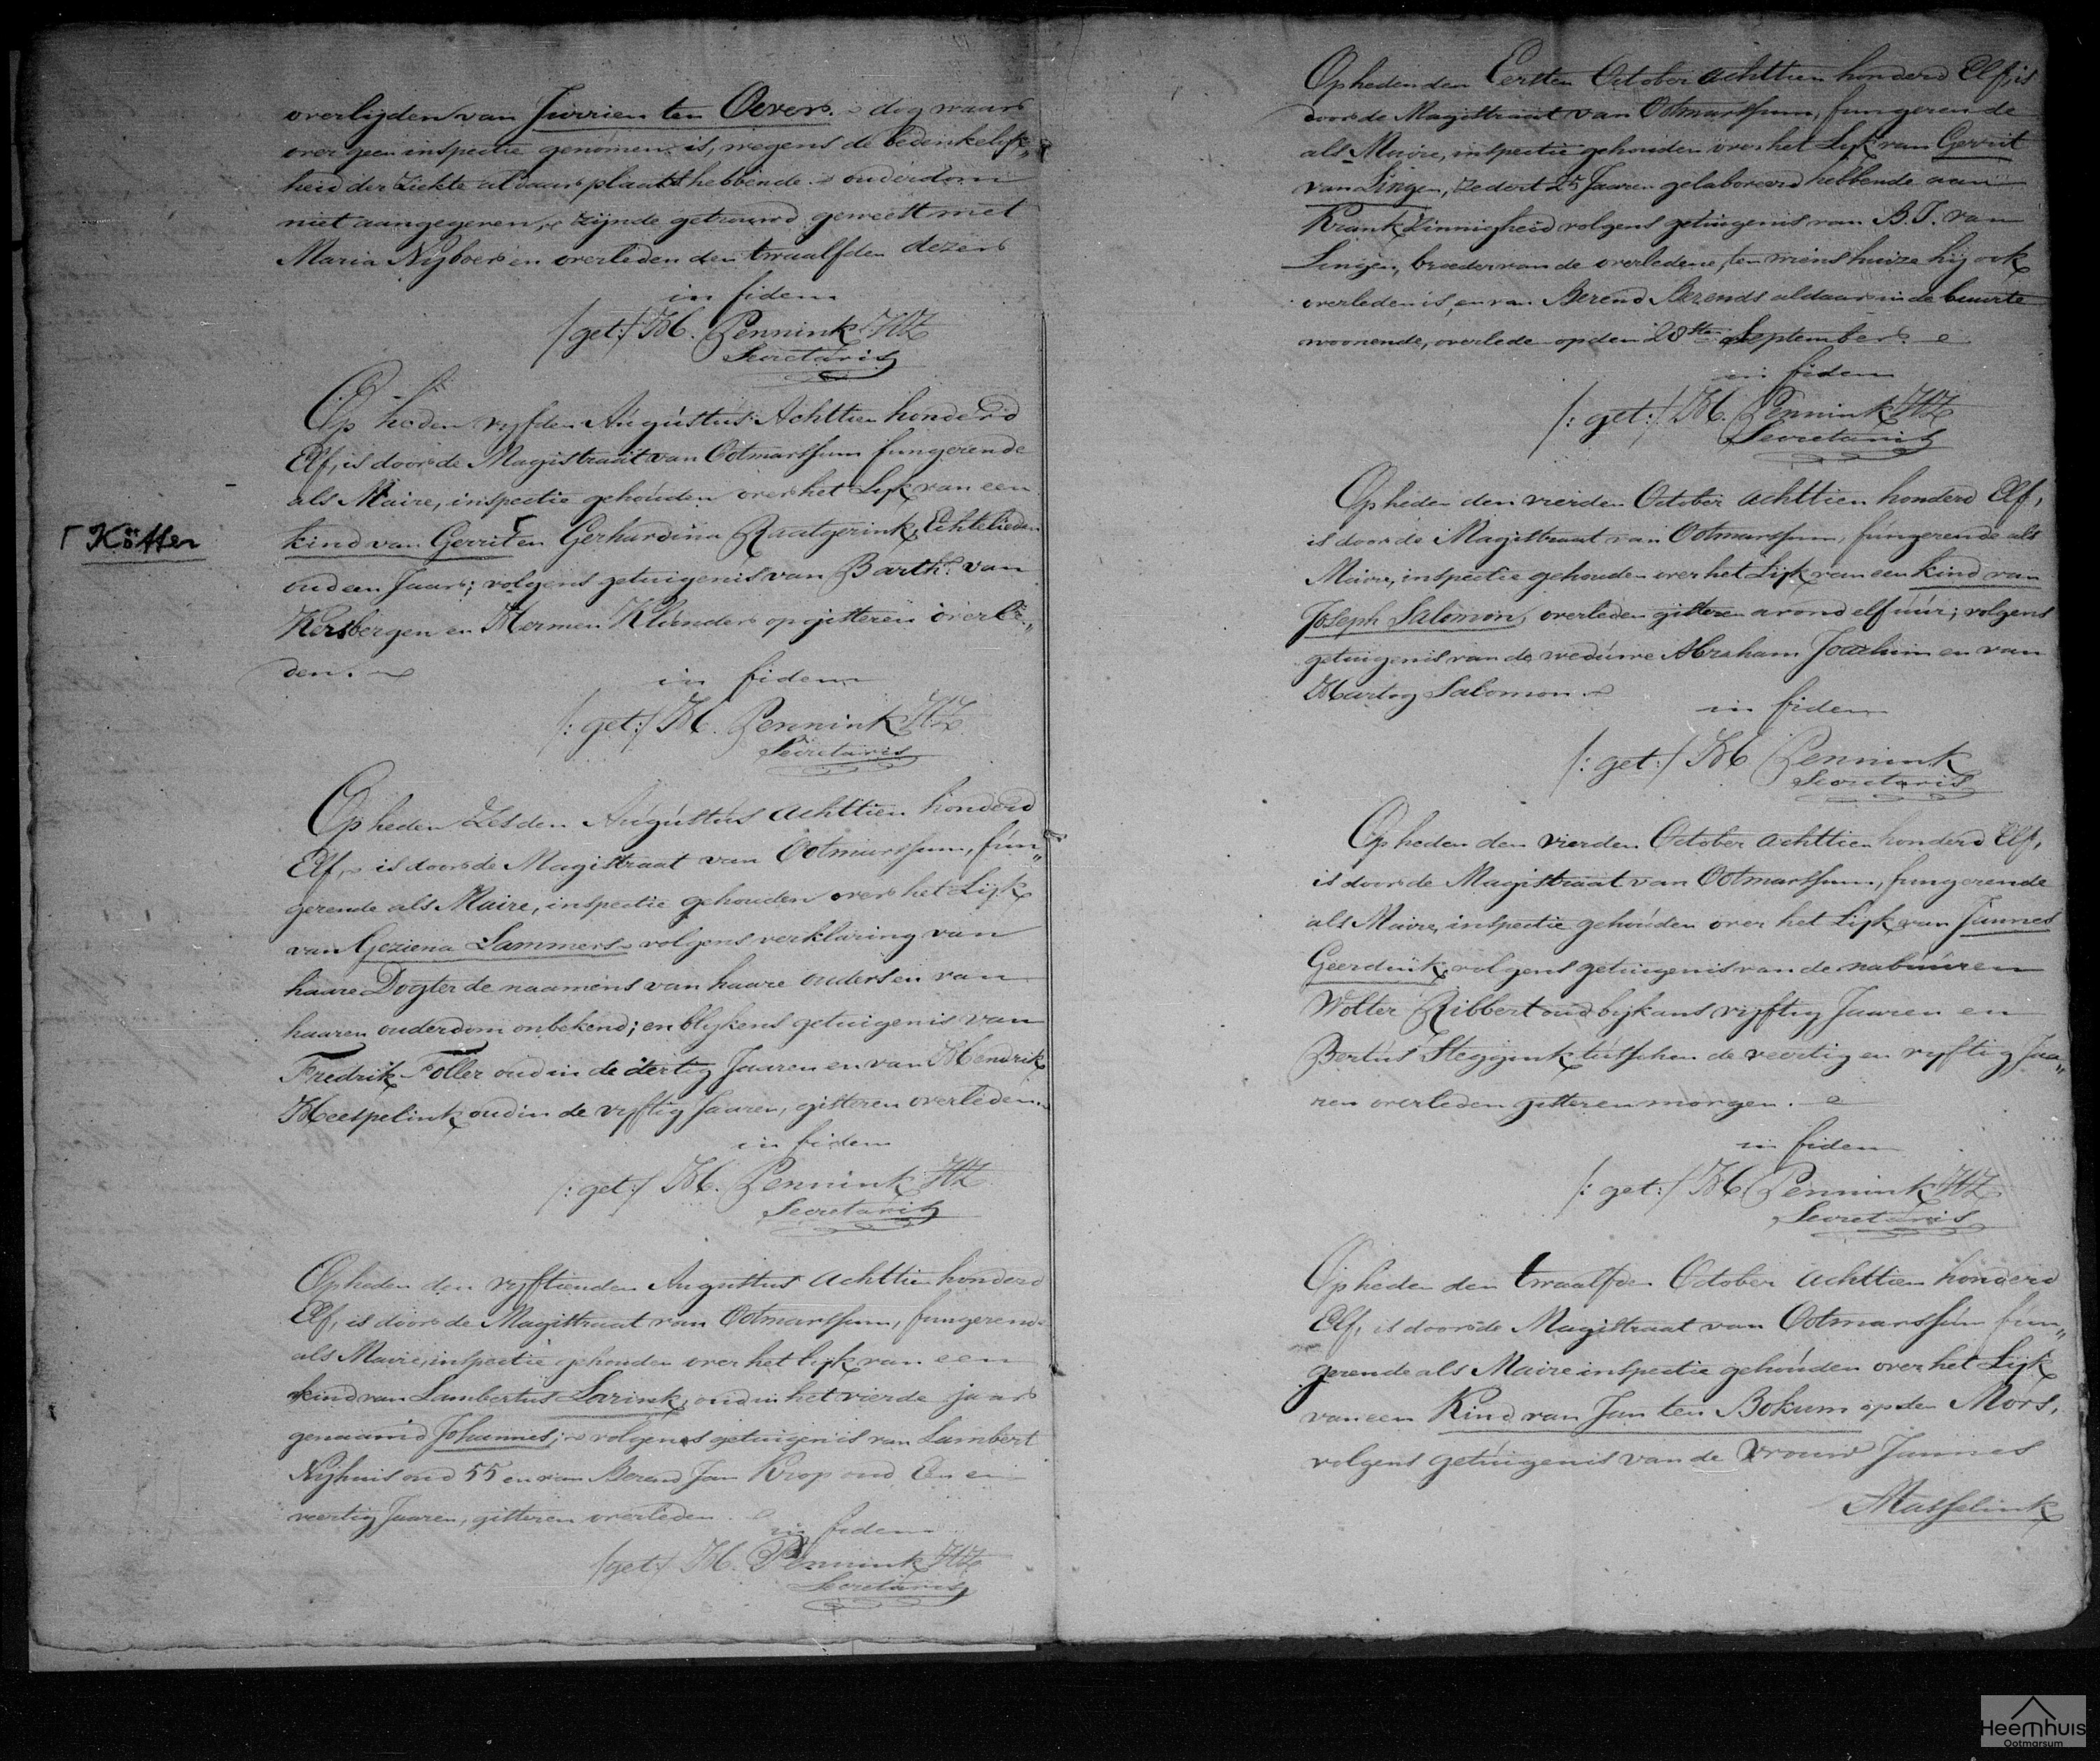 overlijden van Jurrien ten Oever. dog waar
over geen inspectie genomen is, wegens de bedenkelijk„
heid der Ziekte aldaar plaats hebbende. ouderdom
niet aangegeven, zijnde getrouwd geweest met
Maria Nijboer en overleden den twaalfden dezer
in fidem
/get:/ H. Pennink HZ
Secretaris
Op heden vyfden Augústus Achttien honderd
Elf, is door de Magistraat van Ootmarssum fungerende
als Maire, inspectie gehouden over het Lyk van een
kind van Gerrit ┌ en Gerhardina Raatgerink, Echtelieden
oud een Jaar; volgens getuigenis van Barth: van
Kersbergen en Hermen Klúnder op gisteren overle„
den.
┌ Kötter
in fidem
/: get:/ H. Pennink HZ
Secretaris
Op heden Zesden Augústús achttien honderd
Elf, is door de Magistraat van Ootmarssum, fún„
gerende als Maire, inspectie gehouden over het Lijk
van Geziena Lammers volgens verklaring van
haare Dogter de naamens van haare ouders en van
haaren ouderdom onbekend; en blykens getuigenis van
Fredrik Foller oud in de dertig Jaaren en van Hendrik
Heespelink oud in de vyftig Jaaren, gisteren overleden.
in fidem
/: get:/ H. Pennink HZ
Secretaris
Op heden den vyftienden Augustus achttien honderd
Elf, is door de Magistraat van Ootmarssum, fungerende
als Maire, inspectie gehouden over het lijk van een
kind van Lambertus Sorink, oud in het vierde jaar
genaamd Johannes; volgens getuigenis van Lambert
Nijhuis oud 55 en van Berend Jan Krop oud Een en
veertig Jaaren, gisteren overleden.
in fidem
/get:/ H. Pennink HZ
Secretaris
Op heden den Eersten October achttien honderd Elf, is
door de Magistraat van Ootmarssum, fungerende
als Maire, inspectie gehouden over het Lyk van Gerrit
van Lingen, zedert 25 Jaaren gelaboreerd hebbende aan
Krank Zinnigheid volgens getuigenis van B.J. van
Lingen, broeder van de overledene, ten wiens huize hij ook
overleden is, en van Berend Berends aldaar in de buurte
woonende, overlede op den 28sten September.
in fidem
/: get:/ H. Pennink HZ
Secretaris
Op heden den vierden October achttien honderd Elf,
is door de Magistraat van Ootmarssum, fúngerende als
Maire, inspectie gehouden over het Lijk van een kind van
Joseph Salomon, overleden gisteren avond elf uúr; volgens
getuigenis van de wedúwe Abraham Joachim en van
Hartog Salomon.
in fidem
/: get:/ H Pennink
Secretaris
Op heden den vierden October achttien honderd Elf,
is door de Magistraat van Ootmarssum, fungerende
als Maire, inspectie gehoúden over het Lijk van Jannes
Geerdink, volgens getuigenis van de nabuúren
Wolter Ribbert oud bijkans vyftig Jaaren en
Bertús Steggink tútschen de veertig en vyftig Jaa„
ren overleden gisteren morgen.
in fidem
/: get:/ H Pennink HZ
Secretaris
Op heden den twaalfden October achttien honderd
Elf, is door de Magistraat van Ootmarssúm fún„
gerende als Maire inspectie gehoúden over het Lijk
van een Kind van Jan ten Bokum op den Mors,
volgens getúigenis van de Vrouw Jannes
Masselink
Heemhuis
Ootmarsum